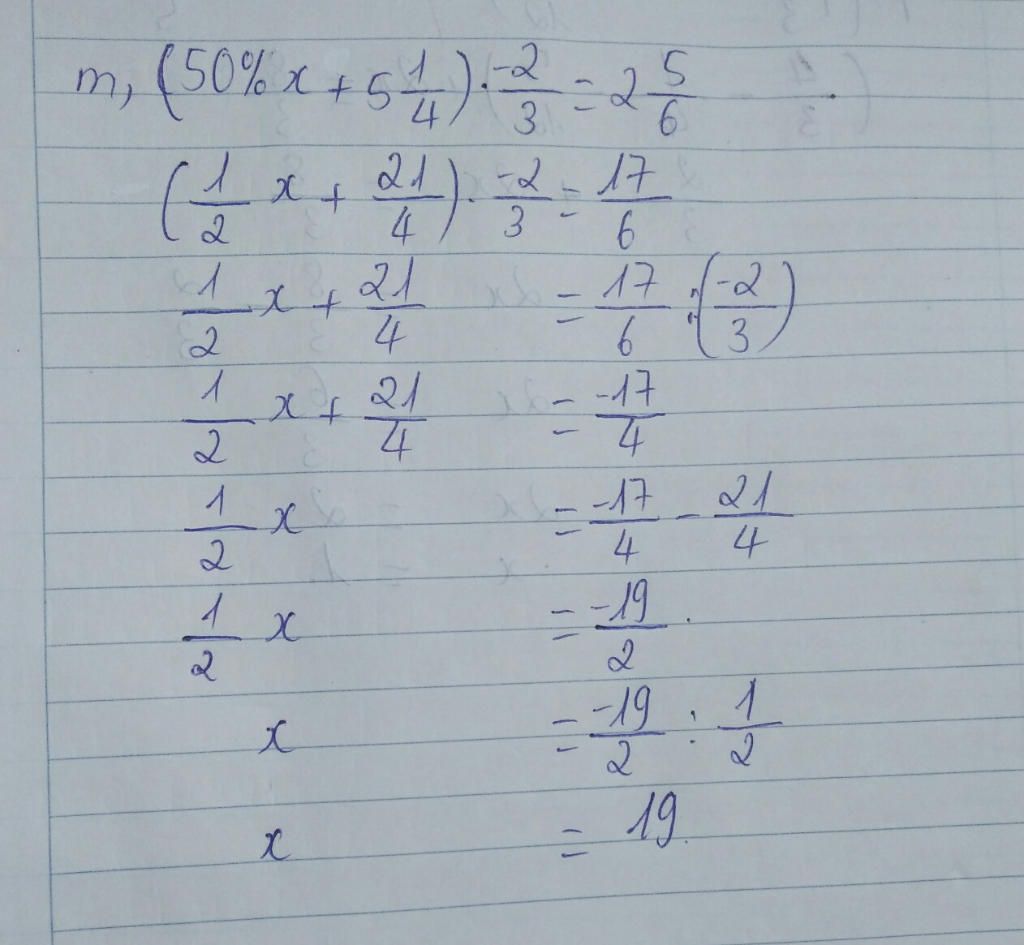 m, (50% x + 5 1/4) · -2/3 = 2 5/6
(1/2 x + 21/4) · -2/3 = 17/6
1/2 x + 21/4 = 17/6 : (-2/3)
1/2 x + 21/4 = -17/4
1/2 x = -17/4 - 21/4
1/2 x = -19/2 .
x = -19/2 : 1/2
x = 19.